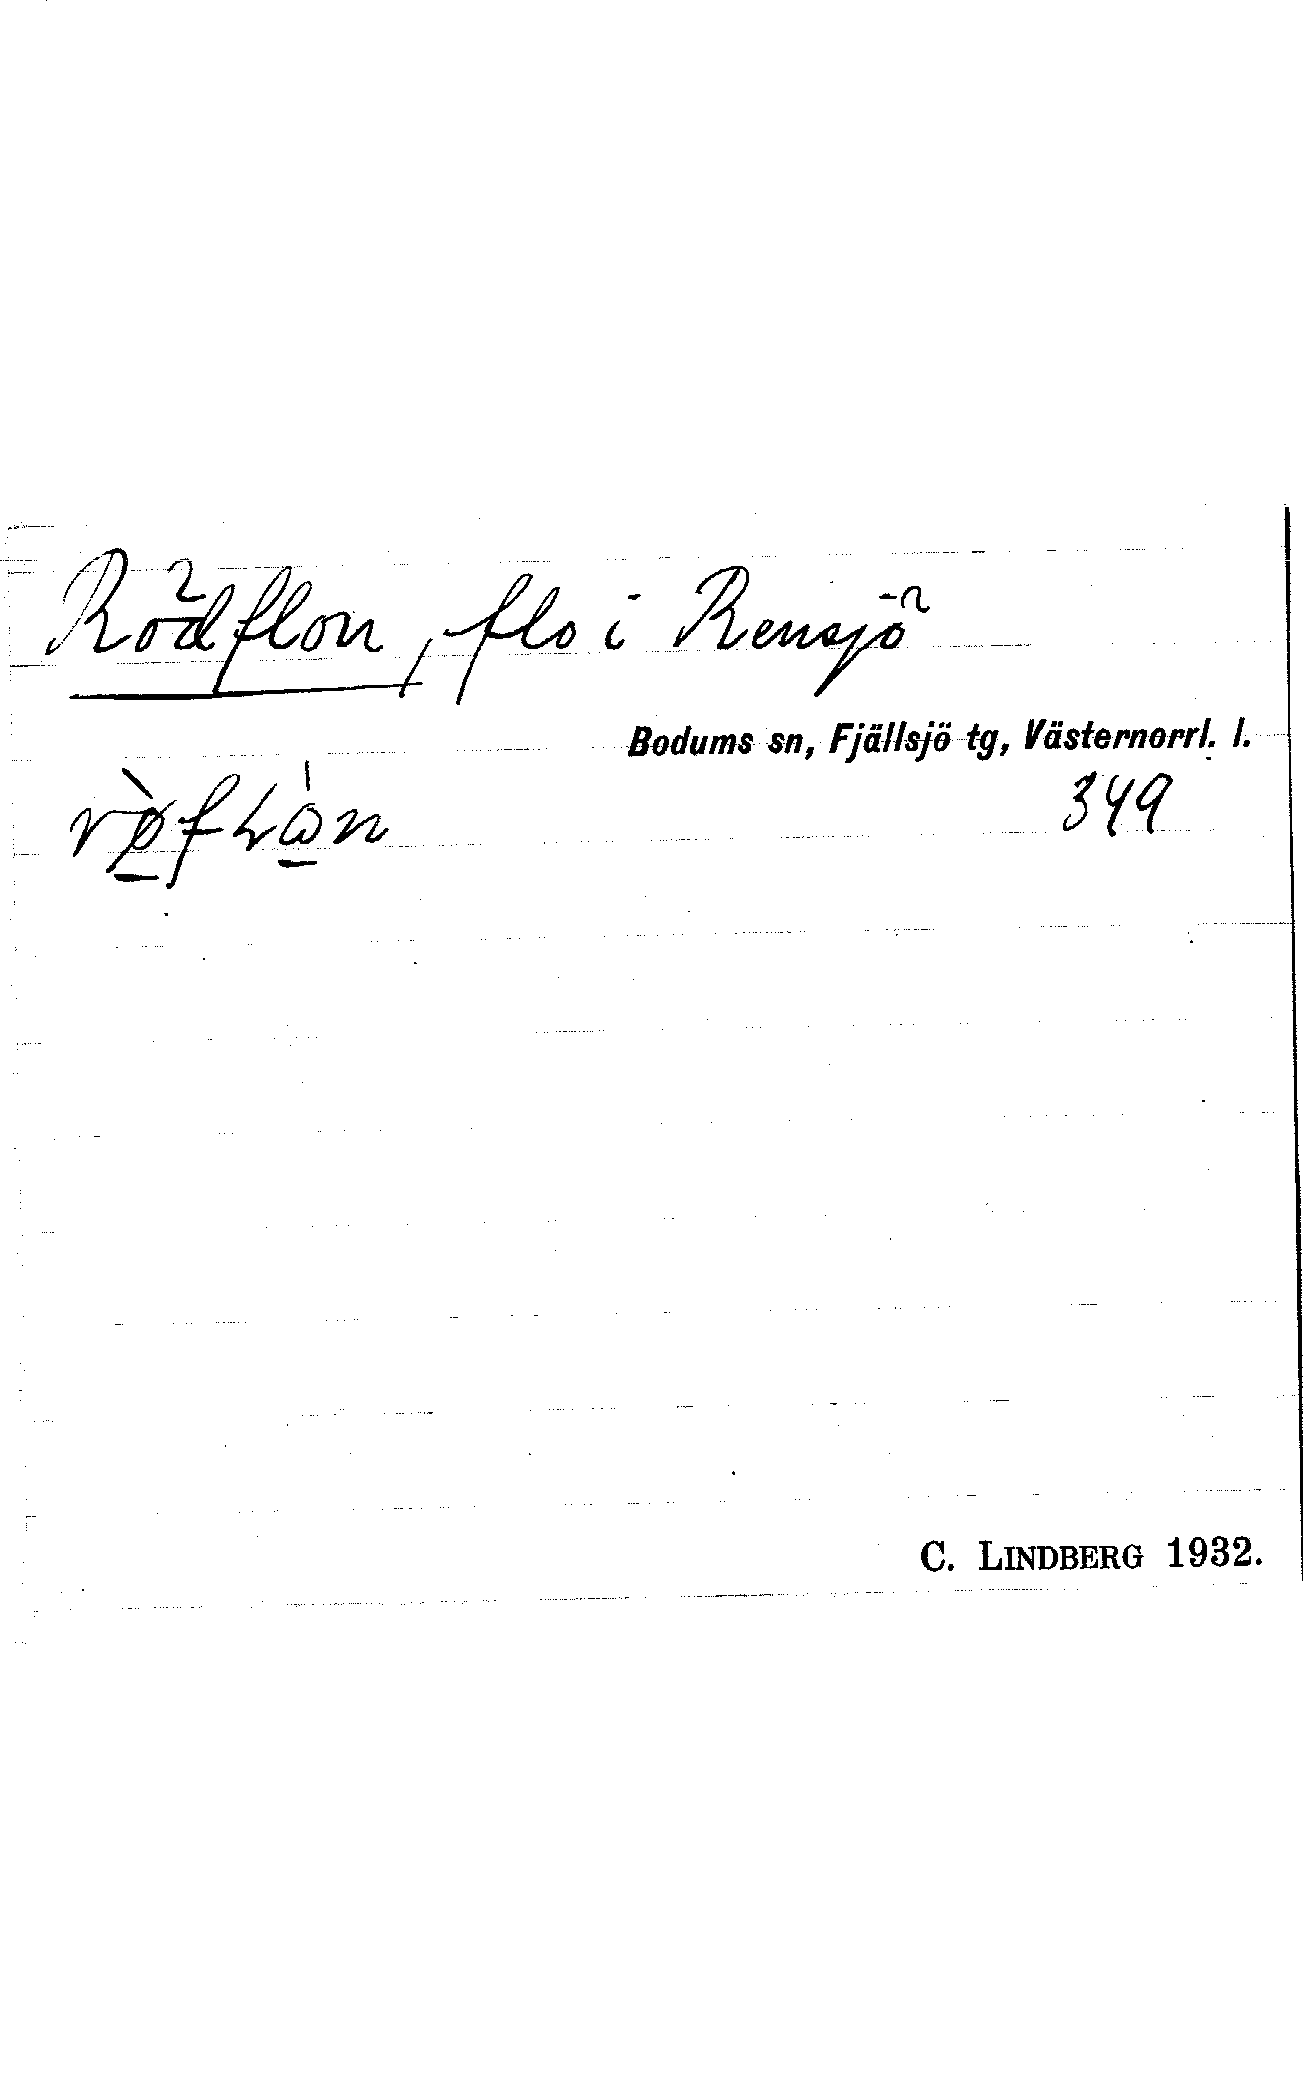 Rödflon, flo i Rensjö
Bodums sn, Fjällsjö tg, Västernorrl. l.
349
C. LINDBERG 1932.